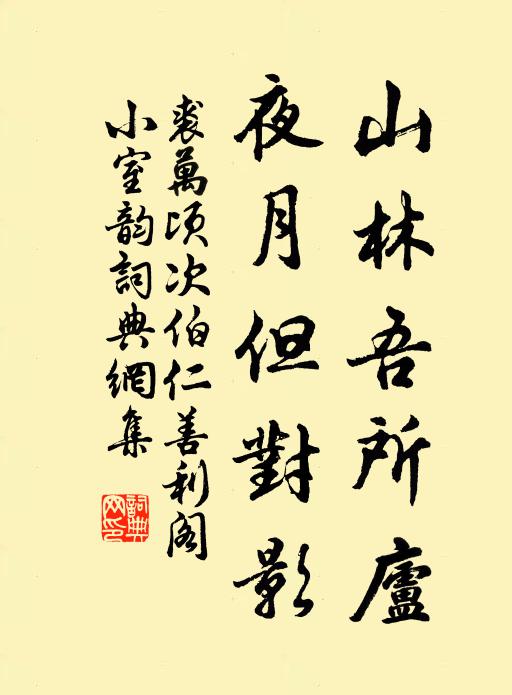 山林吾所廬
夜月但對影
裘萬頃次伯仁善利阁
小室韵詞典網集
詞典网印